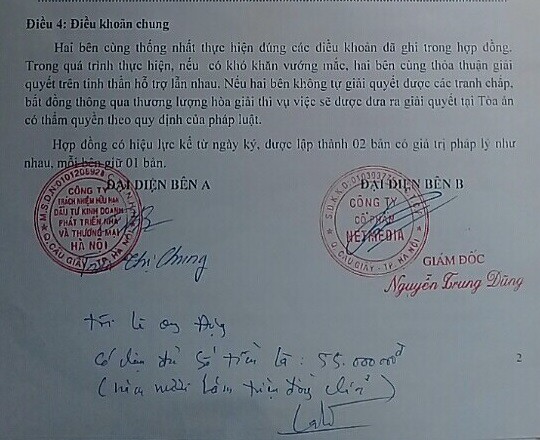 Điều 4: Điều khoản chung
Hai bên cùng thống nhất thực hiện đúng các điều khoản đã ghi trong hợp đồng.
Trong quá trình thực hiện, nếu có khó khăn vướng mắc, hai bên cùng thỏa thuận giải
quyết trên tinh thần hỗ trợ lẫn nhau. Nếu hai bên không tự giải quyết được các tranh chấp,
bất đồng thông qua thương lượng hòa giải thì vụ việc sẽ được đưa ra giải quyết tại Tòa án
có thẩm quyền theo quy định của pháp luật.
Hợp đồng có hiệu lực kể từ ngày ký, được lập thành 02 bản có giá trị pháp lý như
nhau, mỗi bên giữ 01 bản.
ĐẠI DIỆN BÊN A
ĐẠI DIỆN BÊN B
CÔNG TY
TRÁCH NHIỆM HỮU HẠN
ĐẦU TƯ KINH DOANH
PHÁT TRIỂN NHÀ
VÀ THƯƠNG MẠI
HÀ NỘI
Q. CẦU GIẤY - TP. HÀ NỘI
Thị Chung
CÔNG TY
CỔ PHẦN
NETMEDIA
Q. CẦU GIẤY - TP. HÀ NỘI
GIÁM ĐỐC
Nguyễn Trung Dũng
Tôi là
số tiền là: 55.000.000đ
(năm mươi lăm triệu đồng chẵn)
2